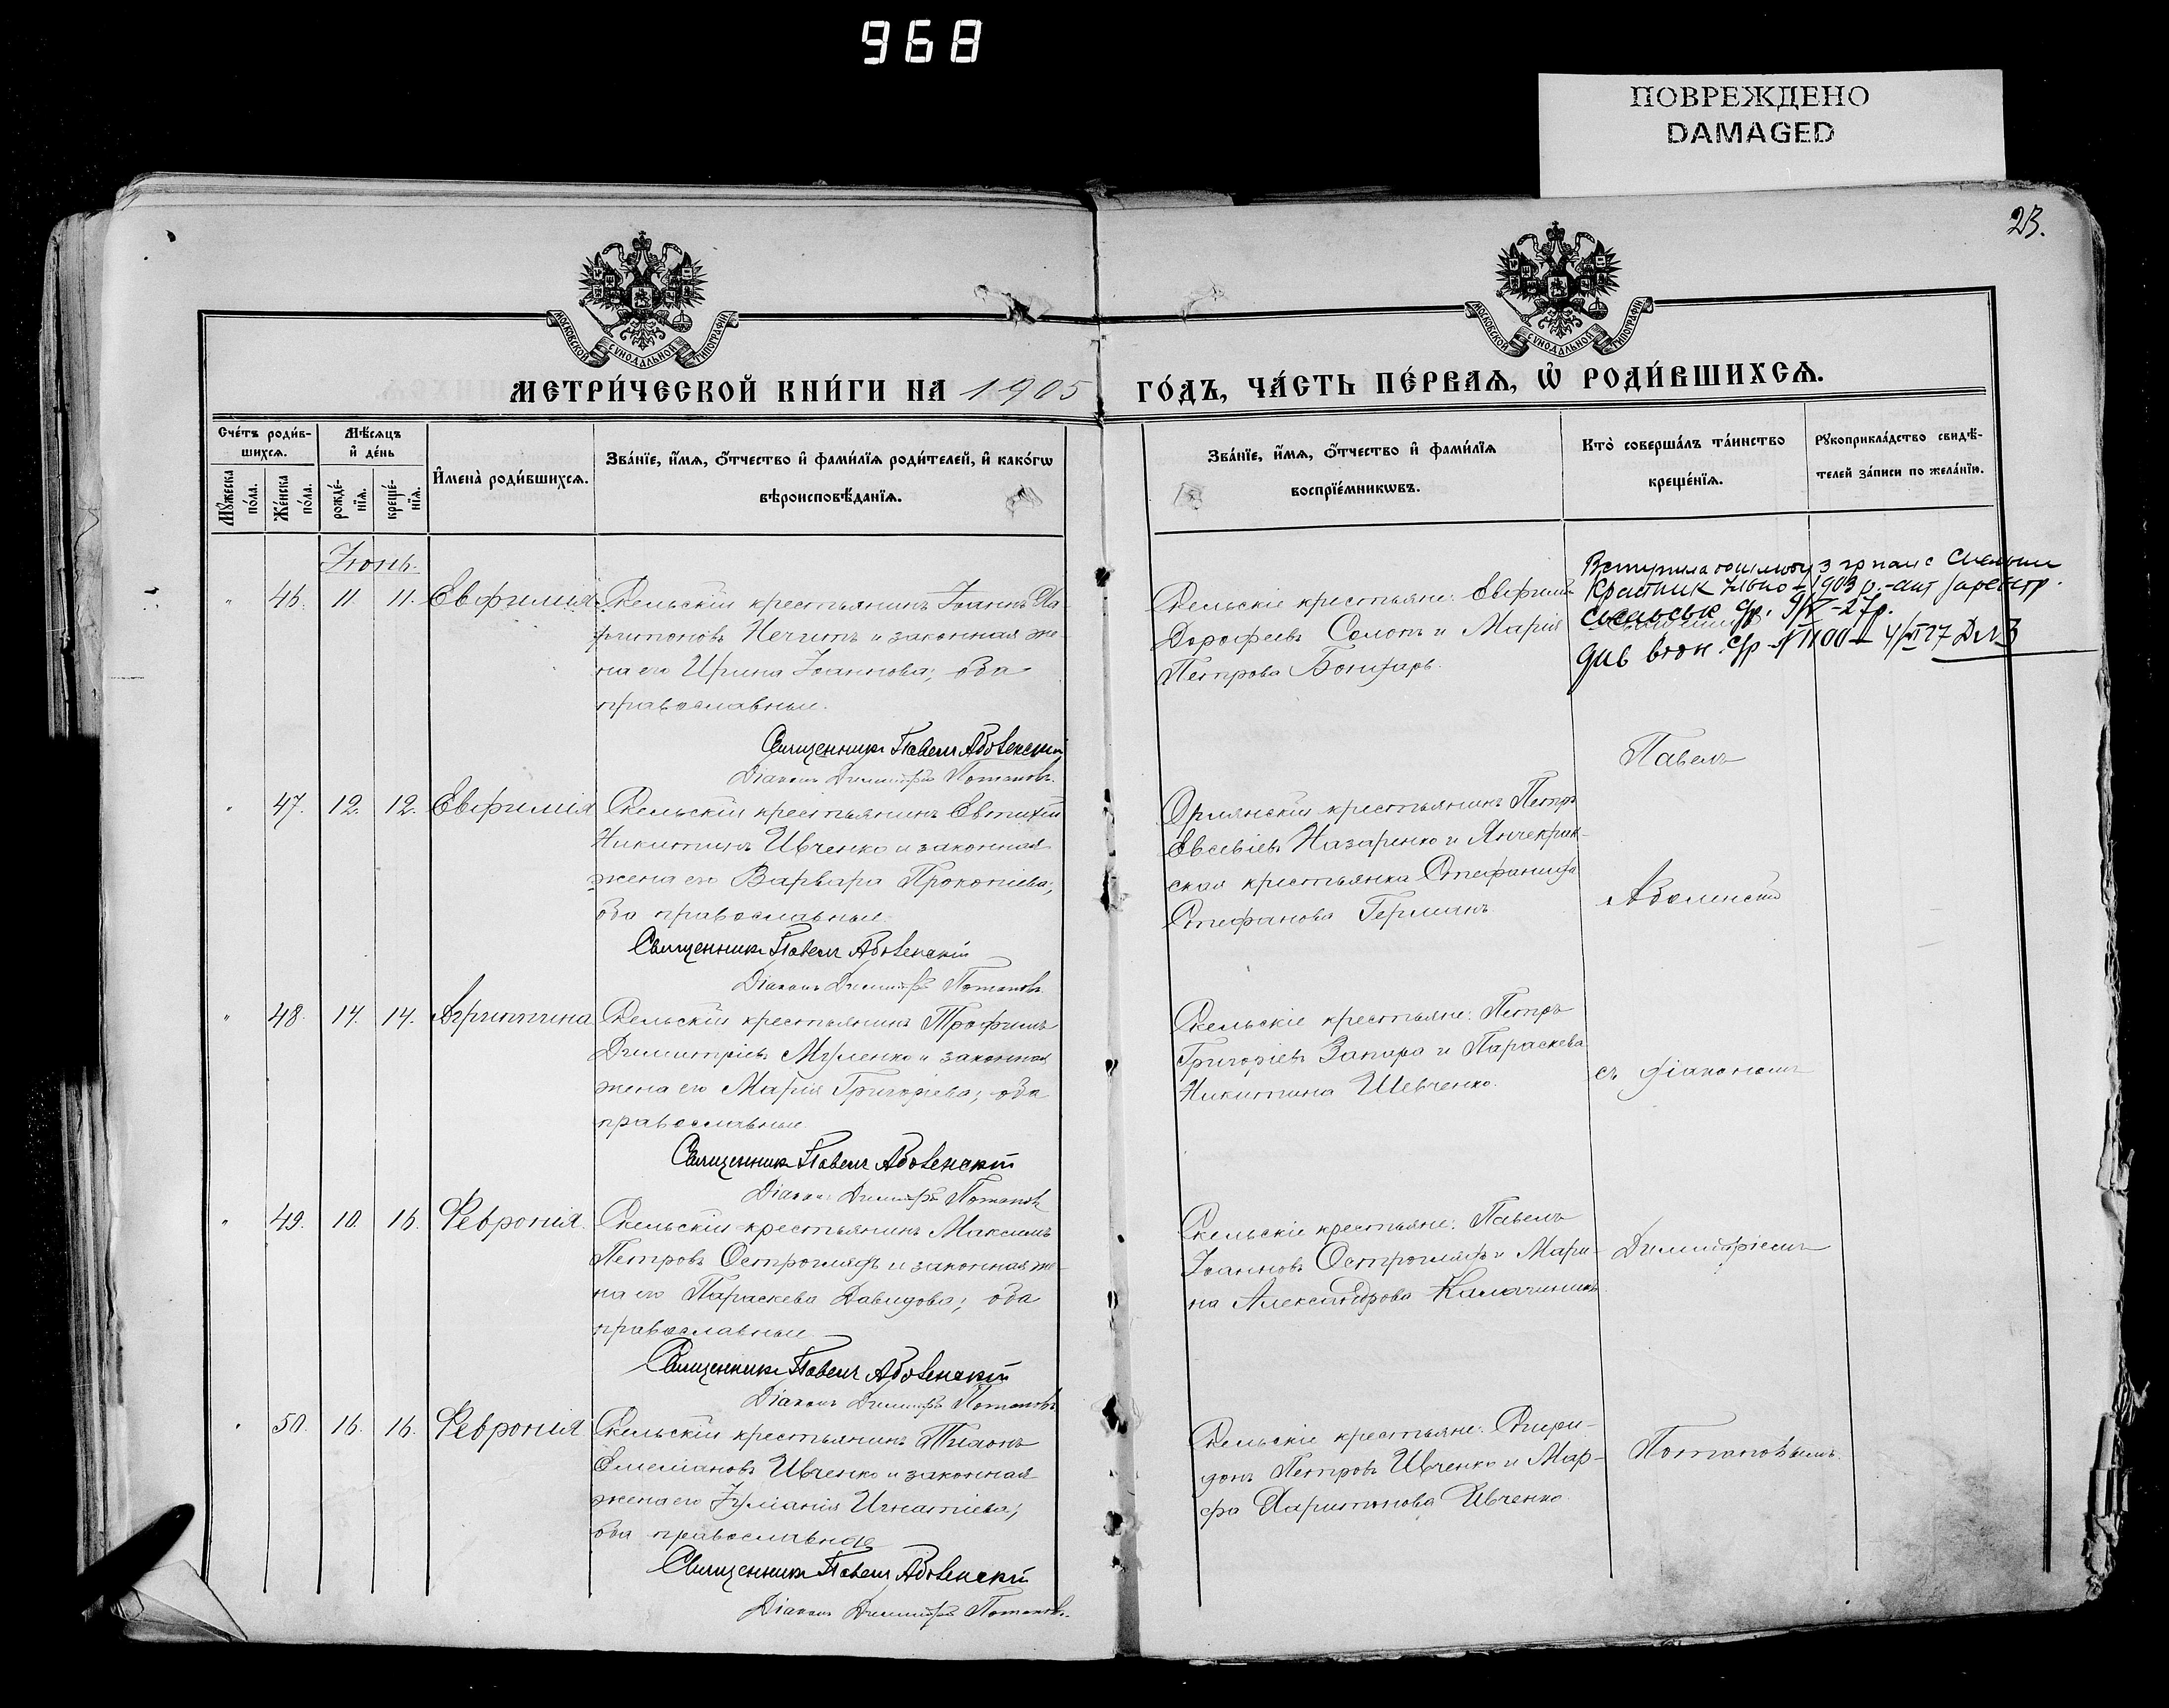 968
ПОВРЕЖДЕНО
DAMAGED
23.
МОСКОВСКОЙ СѴНОДАЛЬНОЙ ТИПОГРАФІИ
МОСКОВСКОЙ СѴНОДАЛЬНОЙ ТИПОГРАФІИ
МЕТРИ́ЧЕСКОЙ КНИ́ГИ НА 1905 ГО́ДЪ, ЧА́СТЬ ПЕ́РВАѦ, Ѡ҆ РОДИ́ВШИХСѦ.
Сче́тъ роди́в-
шихсѧ.
Мѣ́сѧцъ
и҆ де́нь
Мꙋ́жеска
по́ла.
Же́нска
по́ла.
рожде́-
нїѧ.
креще́-
нїѧ.
И҆мена̀ роди́вшихсѧ.
Зва́нїе, и҆́мѧ, ѻ҆́тчество и҆ фами́лїѧ роди́телей, и҆ како́гѡ
вѣроисповѣ́данїѧ.
Зва́нїе, и҆́мѧ, ѻ҆́тчество и҆ фами́лїѧ
воспрїе́мникѡвъ.
Кто̀ соверша́лъ та́инство
креще́нїѧ.
Рꙋкоприкла́дство свидѣ́-
телей за́писи по жела́нїю.
Іюнь.
" 46. 11. 11. Евфимія
Скельскій крестьянинъ Іоаннъ Ха-
ритоновъ Нечитъ и законная же-
на его Ирина Іоаннова; оба
православные.
Священникъ Павелъ Абовенскій
Діаконъ Димитрій Потаповъ.
Скельскіе крестьяне: Евфимій
Дорофеевъ Солопъ и Марія
Петрова Бондарь.
Вступила з гр
Красник 1903 р.
9/V-27р.
4/VI 27
" 47. 12. 12. Евфимія
Скельскій крестьянинъ Евтихій
Никитинъ Ивченко и законная
жена его Варвара Прокопіева;
оба православные.
Священникъ Павелъ Абовенскій
Діаконъ Димитрій Потаповъ.
Орлянскій крестьянинъ Петръ
Евсевіевъ Назаренко и Янчекрик-
ская крестьянка Стефанида
Стефанова Германъ
" 48. 14. 14. Агриппина
Скельскій крестьянинъ Трофимъ
Димитріевъ Муленко и законная
жена его Марія Григоріева; оба
православные.
Священникъ Павелъ Абовенскій
Діаконъ Димитрій Потаповъ
Скельскіе крестьяне: Петръ
Григоріевъ Запара и Параскева
Никитина Шевченко.
" 49. 10. 16. Февронія.
Скельскій крестьянинъ Максимъ
Петровъ Остроглядъ и законная же-
на его Параскева Давидова; оба
православные
Священникъ Павелъ Абовенскій
Діаконъ Димитрій Потаповъ
Скельскіе крестьяне: Павелъ
Іоанновъ Остроглядъ и Мари-
на Александрова
" 50. 16. 16. Февронія
Скельскій крестьянинъ Тихонъ
Емеліановъ Ивченко и законная
жена его Іуліанія Игнатіева;
оба православные
Священникъ Павелъ Абовенскій
Діаконъ Димитрій Потаповъ.
Скельскіе крестьяне: Спири-
донъ Петровъ Ивченко и Мар-
фа Харитонова Ивченко
Павелъ
Абовенскій
съ діакономъ
Димитріемъ
Потаповымъ.